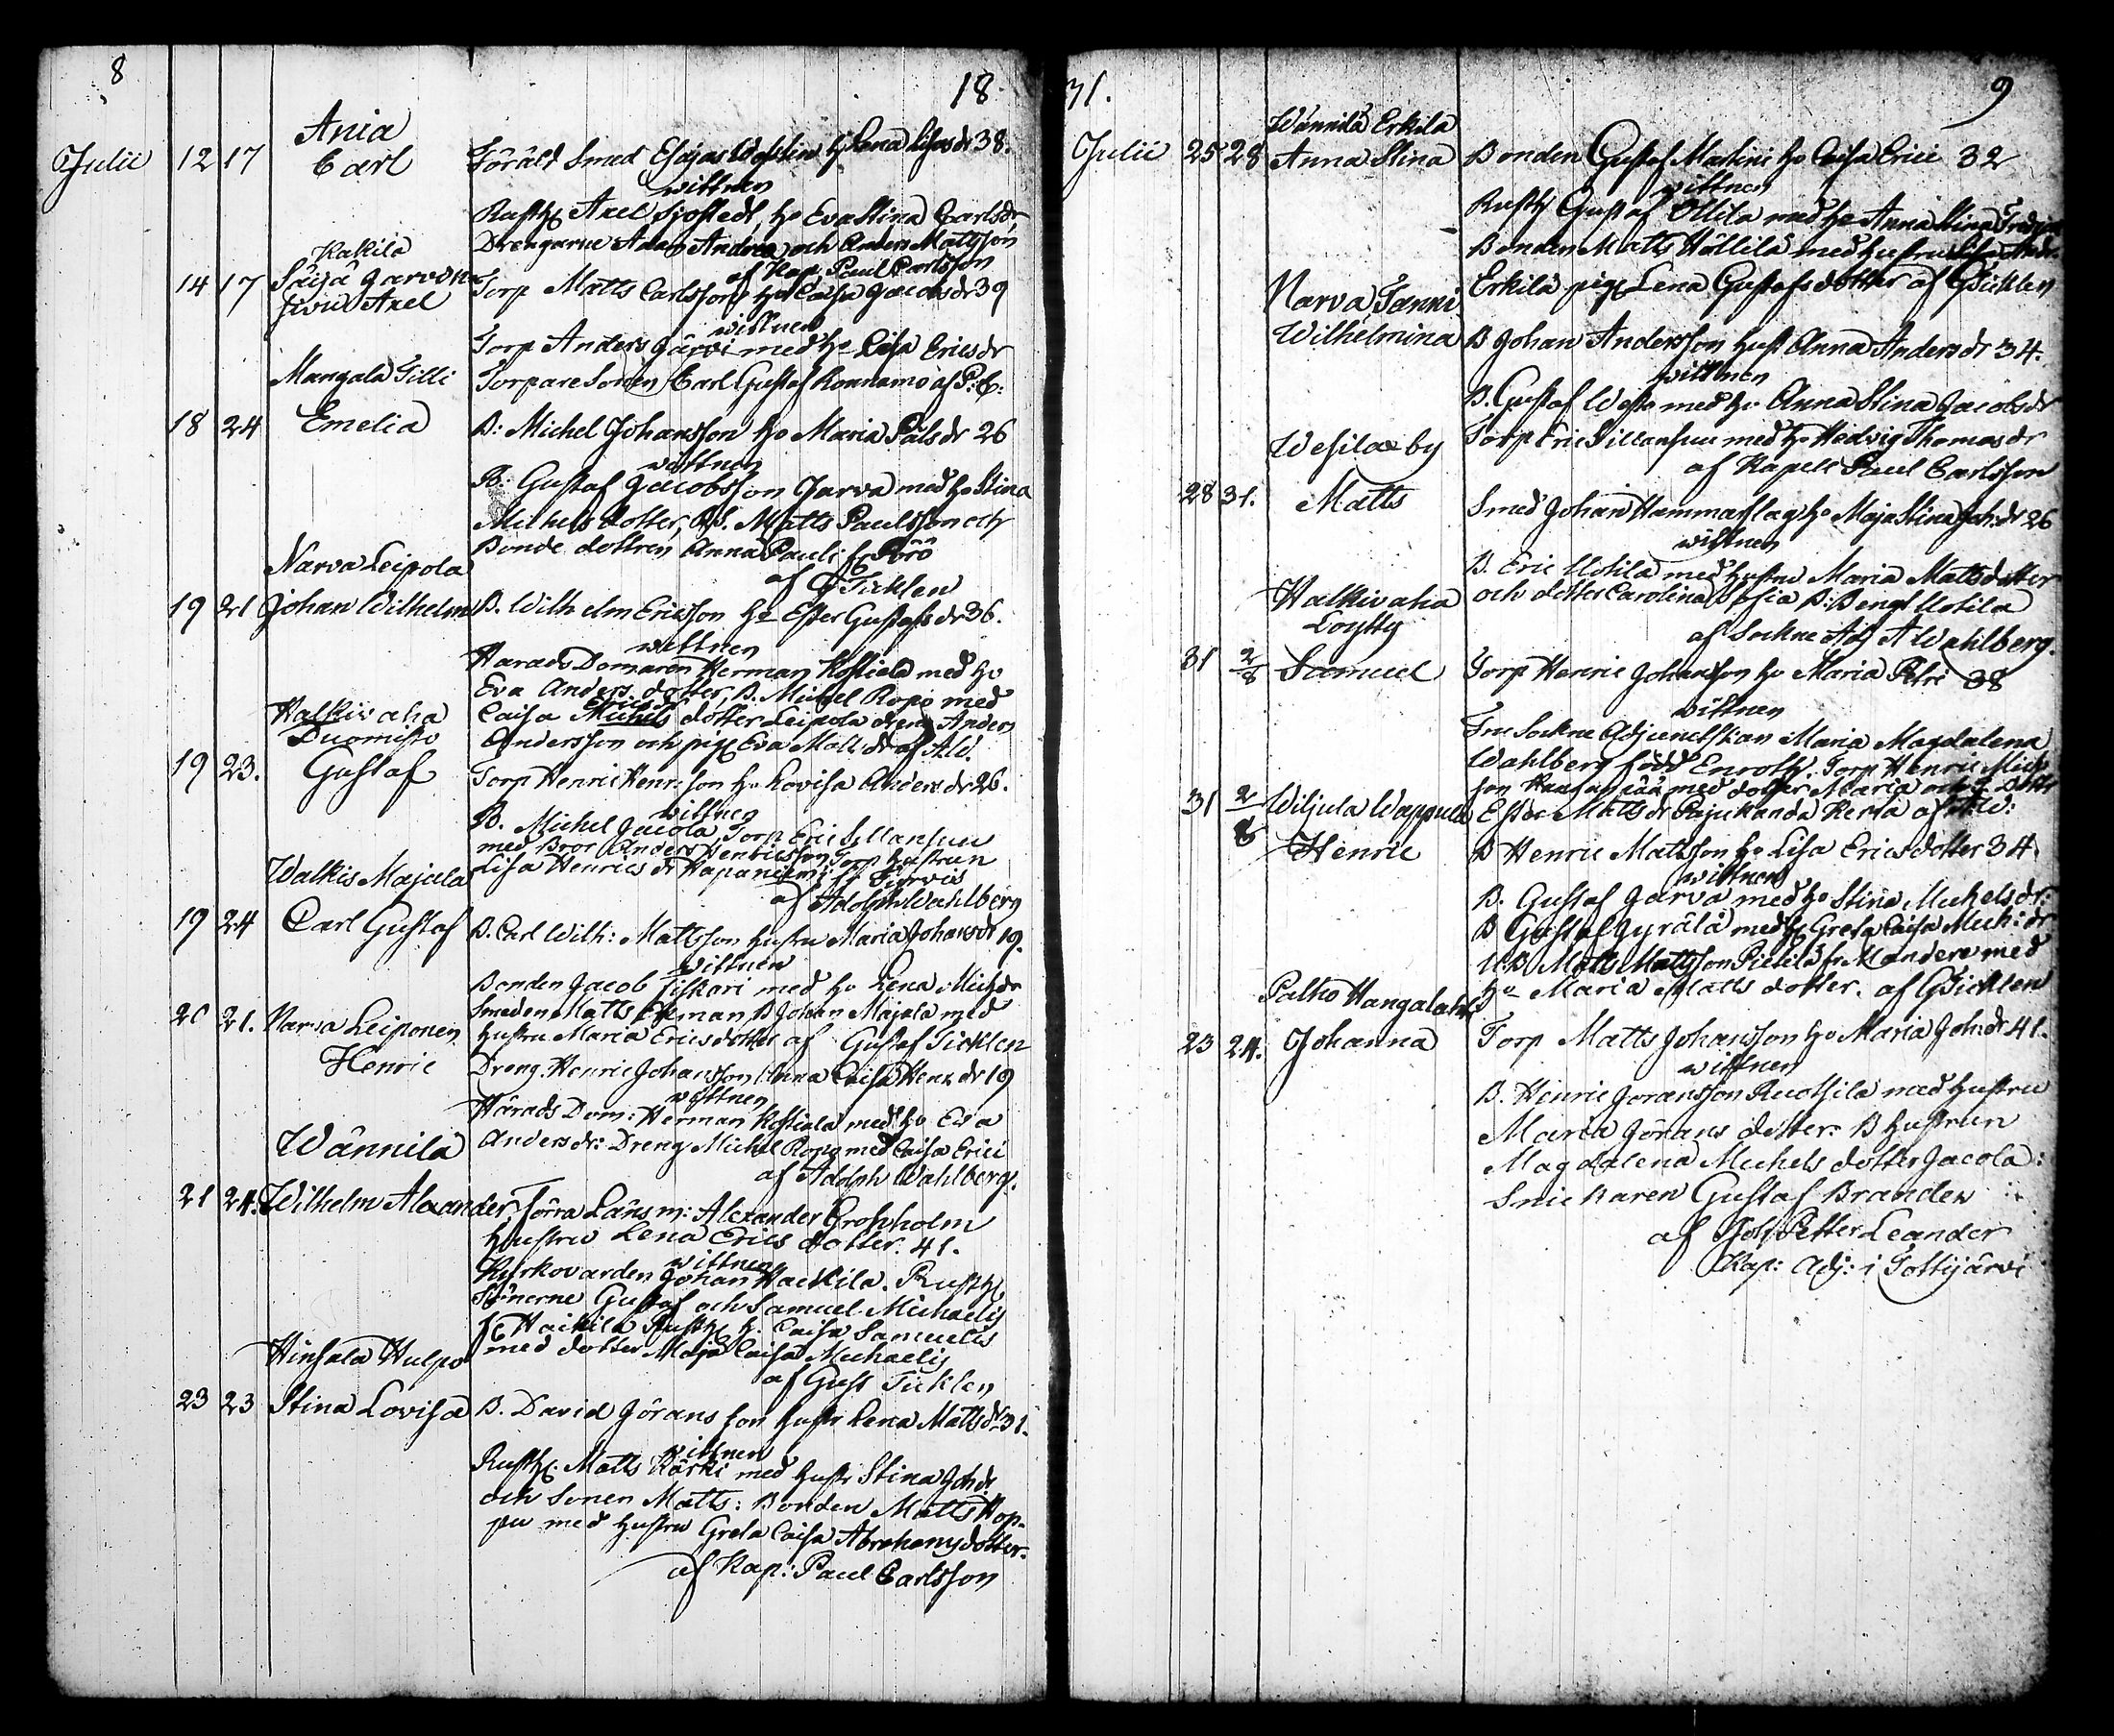 8
18
Ania
Julii 12 17 Carl Föräld Smed Esajas hu Lena 38.
wittnen
Rusth Axel Sjöstedt, ho Eva Stina Carlsdr
Drengarne Adam Andrea och Anders Mattsson
Kakila
af Kap. Paul Carlsson
14 17 Säijä Torp Matts Carlsson ho Caisa Jacobsdr 39
Axel
wittnen
Torp Anders Järvi med ho Lisa Ericsdr
Mangala Tilli Torparesonen Carl Gustaf Konnamo af P: C:
18 24 Emelia B: Michel Johansson ho Maria Pålsdr 26
wittnen
B: Gustaf Jacobsson Jarva med ho Stina
Michels dotter, Matts Paulsson och
Bonde dottren Anna Pauli fr Pörö
Narva Leipola
af G Ticklen
19 21 Johan Wilhelm B. Wilhelm Ericsson ho Ester Gustafsdr 36.
wittnen
Härads Domaren Herman Kostiala med ho
Eva Anders dotter, B. Michel Ropo med
Caisa Michels Erics dotter Leipola dreng Anders
Walkivaha
Duomisto
Andersson och pig Eva Matts dr af A.W.
19 23. Gustaf Torp Henric Henr: son ho Lovisa Anders dr 26.
wittnen
B. Michel Jacola, Torp Eric Sillansuu
med Bror Anders Henricsson Torp hustrun
Lisa Henrics dr Hapaniemi fr
Walkis Majala
af Adolph Wahlberg
19 24 Carl Gustaf B. Carl Wilh: Mattsson hustru Maria Johansdr 19.
wittnen
Bonden Jacob Fiskari med ho Lena Mich dr
Smeden Matts Ekman B Johan Majala med
hustru Maria Ericsdotter af Gustaf Ticklen
20 21. Narva Leiponen
Henric Dreng Henric Johansson Anna Caisa Henr dr 19
wittnen
Härads Dom: Herman Kostiala med ho Eva
Anders dr: Dreng Michel Ropo med Caisa Erici
Wännilä
af Adolph Wahlberg.
21 24. Wilhelm Alexander Förra Länsm: Alexander Gropholm
hustru Lena Erics dotter. 41.
wittnen
Kyrkovarden Johan Haikila. Rusth
Sönerne Gustaf och Samuel Michaelis
fr Haikila Rusth h. Caisa Samuelis
med dotter Maja Caisa Michaelis
Hinsala Hulpo
af Gust Ticklen
23 23 Stina Lovisa B. David Görans son hustr Lena Matts dr 31.
wittnen
Rusth: Matts Kärki med hustr Stina Joh dr
och Sonen Matts: Bonden Matts Hop-
pu med hustru Greta Caisa Abrahamsdotter.
af Kap: Paul Carlsson
31.
9
Wännilä Erkilä
Julii 25 28 Anna Stina Bonden Gustaf Martini ho Caisa Erici 32
wittnen
Rusth Gustaf Ollila med ho Anna Stina
Bonden Matts Hällilä med hustru
Erkilä pig Lena Gustafsdotter af G Ticklen
Narva Tanni
Wilhelmina B Johan Andersson hust Anna Anders dr 34.
wittnen
B. Gustaf Weste med ho Anna Stina Jacobsdr
Torp Eric Sillansuu med ho Hedvig Thomas dr
Wesilax by
af Kapell Paul Carlsson
28 31. Matts Smed Johan Hammarslag ho Maja Stina Joh: dr 26
wittnen
B. Eric Uotila med hustru Maria Mattsdotter
och dotter Carolina Sofia B: Bengt Uotila
Walkivaha
Löytty
af Sockne Adj A Wahlberg.
31 2/8 Samuel Torp Henric Johansson ho Maria Petri 38
wittnen
Fru Sockne Adjunctskan Maria Magdalena
Wahlberg född Enroth. Torp Henric Mich
son med dotter Maria och
Ester Matts dr Pajukanda Kerta af A W:
31 2/8 Wiljula Wappula
Henric B Henric Mattsson ho Lisa Ericsdotter 34.
wittnen
B. Gustaf Jarva med ho Stina Michels dr:
B Gustaf Jyrälä med h Greta Caisa Mich: dr
Matts Mattsson Pietilä fr Mandere med
ho Maria Matts dotter. af G Ticklen
Palho Hangalahti
23 24. Johanna Torp Matts Johansson ho Maria Joh: dr 41.
wittnen
B. Henric Joransson Ruotsila med hustru
Maria Görans dotter. B hustrun
Magdalena Michels dotter Jacola:
Snickaren Gustaf Brander
af Joh: Petter Leander
Kap: Adj: i Tottijärvi